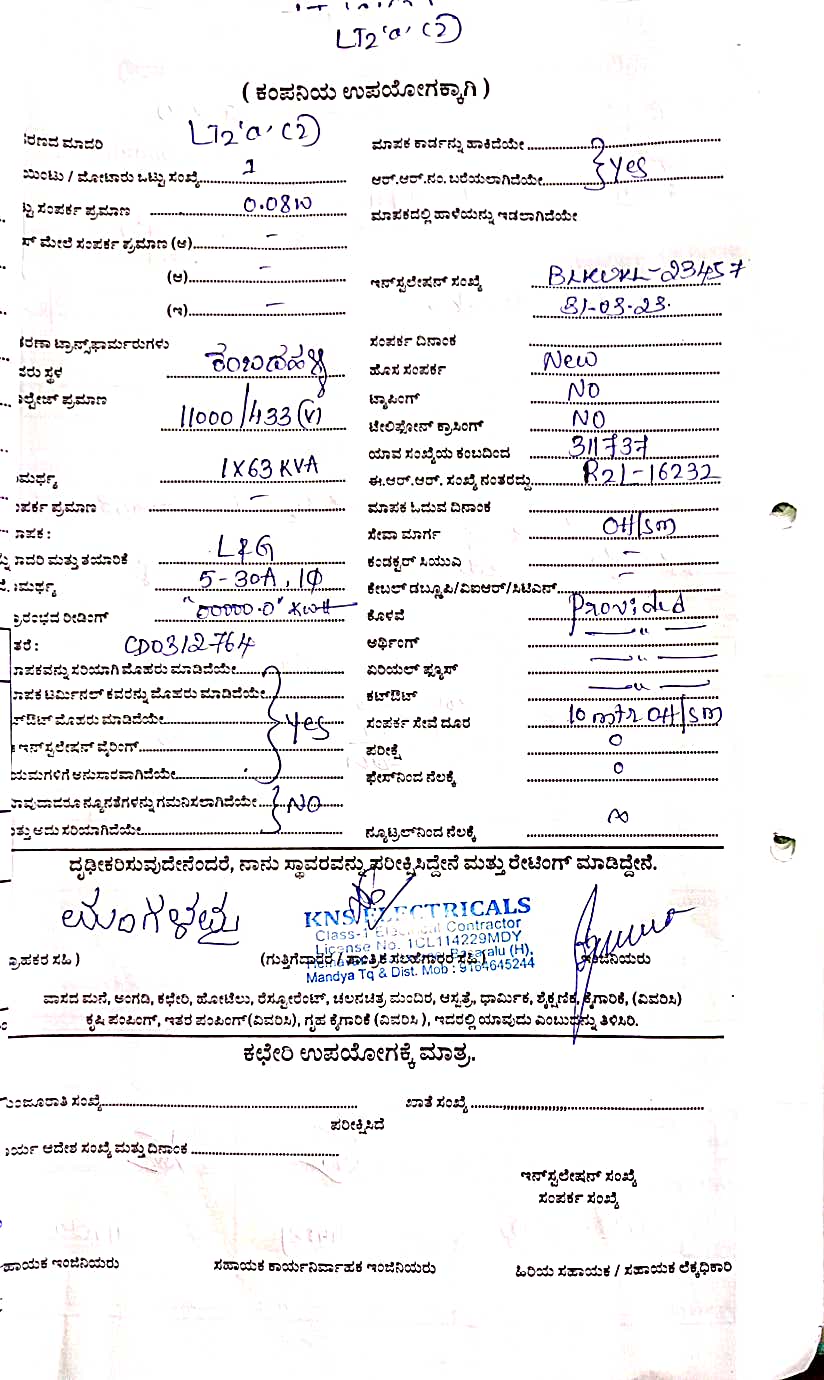 LT2 'a' (2)
( ಕಂಪನಿಯ ಉಪಯೋಗಕ್ಕಾಗಿ )
ಕರಣದ ಮಾದರಿ LT2 'a' (2) ಮಾಪಕ ಕಾರ್ಡನ್ನು ಹಾಕಿದೆಯೇ
ಯಿಂಟು / ಮೋಟಾರು ಒಟ್ಟು ಸಂಖ್ಯೆ 1 ಆರ್.ಆರ್.ನಂ. ಬರೆಯಲಾಗಿದೆಯೇ } Yes
ಟ್ಟು ಸಂಪರ್ಕ ಪ್ರಮಾಣ 0.08W ಮಾಪಕದಲ್ಲಿ ಹಾಳೆಯನ್ನು ಇಡಲಾಗಿದೆಯೇ
ಸ್ ಮೇಲೆ ಸಂಪರ್ಕ ಪ್ರಮಾಣ (ಅ) -
(ಆ) - ಇನ್‌ಸ್ಟಲೇಷನ್ ಸಂಖ್ಯೆ BLKWKL-23457
(ಇ) - 31-03-23.
ಕರಣಾ ಟ್ರಾನ್ಸ್‌ಫಾರ್ಮರುಗಳು ಸಂಪರ್ಕ ದಿನಾಂಕ
ಸರು ಸ್ಥಳ ಕಂಬದಹಳ್ಳಿ ಹೊಸ ಸಂಪರ್ಕ New
ಲ್ಟೇಜ್ ಪ್ರಮಾಣ 11000/433 (V) ಟ್ಯಾಪಿಂಗ್ NO
ಟೇಲಿಫೋನ್ ಕ್ರಾಸಿಂಗ್ NO
ಯಾವ ಸಂಖ್ಯೆಯ ಕಂಬದಿಂದ 311737
ಾಮರ್ಥ್ಯ 1X63 KVA ಈ.ಆರ್.ಆರ್. ಸಂಖ್ಯೆ ನಂತರದ್ದು R21-16232
ಂಪರ್ಕ ಪ್ರಮಾಣ - ಮಾಪಕ ಓದುವ ದಿನಾಂಕ
ಾಪಕ : ಸೇವಾ ಮಾರ್ಗ OH/sm
ಾದರಿ ಮತ್ತು ತಯಾರಿಕೆ L&G ಕಂಡಕ್ಟರ್ ಸಿಯುಎ -
ಾಮರ್ಥ್ಯ 5-30A, 1Φ ಕೇಬಲ್ ಡಬ್ಲ್ಯೂಪಿ/ವಿಐಆರ್/ಸಿಟಿಎಸ್ -
ಪ್ರಾರಂಭದ ರೀಡಿಂಗ್ "00000.0" KWH ಕೊಳವೆ Provided
ತರೆ : CD0312764 ಅರ್ಥಿಂಗ್ — " —
ಾಪಕವನ್ನು ಸರಿಯಾಗಿ ಮೊಹರು ಮಾಡಿದೆಯೇ ಏರಿಯಲ್ ಫ್ಯೂಸ್ — " —
ಾಪಕ ಟರ್ಮಿನಲ್ ಕವರನ್ನು ಮೊಹರು ಮಾಡಿದೆಯೇ ಕಟ್‌ಔಟ್ — " —
ಟ್‌ಔಟ್ ಮೊಹರು ಮಾಡಿದೆಯೇ } Yes ಸಂಪರ್ಕ ಸೇವೆ ದೂರ 10 mtr OH/sm
ಇನ್‌ಸ್ಟಲೇಷನ್ ವೈರಿಂಗ್ ಪರೀಕ್ಷೆ 0
ಯಮಗಳಿಗೆ ಅನುಸಾರವಾಗಿದೆಯೇ ಫೇಸ್‌ನಿಂದ ನೆಲಕ್ಕೆ 0
ಾವುದಾದರೂ ನ್ಯೂನತೆಗಳನ್ನು ಗಮನಿಸಲಾಗಿದೆಯೇ } NO
ತ್ತು ಅದು ಸರಿಯಾಗಿದೆಯೇ ನ್ಯೂಟ್ರಲ್‌ನಿಂದ ನೆಲಕ್ಕೆ ∞
ದೃಢೀಕರಿಸುವುದೇನೆಂದರೆ, ನಾನು ಸ್ಥಾವರವನ್ನು ಪರೀಕ್ಷಿಸಿದ್ದೇನೆ ಮತ್ತು ರೇಟಿಂಗ್ ಮಾಡಿದ್ದೇನೆ.
ಮಂಗಳಮ್ಮ
KNS ELECTRICALS
Class-1 Electrical Contractor
License No. 1CL114229MDY
Basaralu (H),
Mandya Tq & Dist. Mob : 9164645244
್ರಾಹಕರ ಸಹಿ ) (ಗುತ್ತಿಗೆದಾರರ / ತಾಂತ್ರಿಕ ಸಲಹೆಗಾರರ ಸಹಿ ) ಇಂಜಿನಿಯರು
ವಾಸದ ಮನೆ, ಅಂಗಡಿ, ಕಛೇರಿ, ಹೋಟೆಲು, ರೆಸ್ಟೋರೆಂಟ್, ಚಲನಚಿತ್ರ ಮಂದಿರ, ಆಸ್ಪತ್ರೆ, ಧಾರ್ಮಿಕ, ಶೈಕ್ಷಣಿಕ, ಕೈಗಾರಿಕೆ, (ವಿವರಿಸಿ)
ಕೃಷಿ ಪಂಪಿಂಗ್, ಇತರ ಪಂಪಿಂಗ್ (ವಿವರಿಸಿ), ಗೃಹ ಕೈಗಾರಿಕೆ (ವಿವರಿಸಿ ), ಇದರಲ್ಲಿ ಯಾವುದು ಎಂಬುದನ್ನು ತಿಳಿಸಿರಿ.
ಕಛೇರಿ ಉಪಯೋಗಕ್ಕೆ ಮಾತ್ರ.
ಮಂಜೂರಾತಿ ಸಂಖ್ಯೆ ಖಾತೆ ಸಂಖ್ಯೆ
ಪರೀಕ್ಷಿಸಿದೆ
ಾರ್ಯ ಆದೇಶ ಸಂಖ್ಯೆ ಮತ್ತು ದಿನಾಂಕ
ಇನ್‌ಸ್ಟಲೇಷನ್ ಸಂಖ್ಯೆ
ಸಂಪರ್ಕ ಸಂಖ್ಯೆ
ಹಾಯಕ ಇಂಜಿನಿಯರು ಸಹಾಯಕ ಕಾರ್ಯನಿರ್ವಾಹಕ ಇಂಜಿನಿಯರು ಹಿರಿಯ ಸಹಾಯಕ / ಸಹಾಯಕ ಲೆಕ್ಕಧಿಕಾರಿ